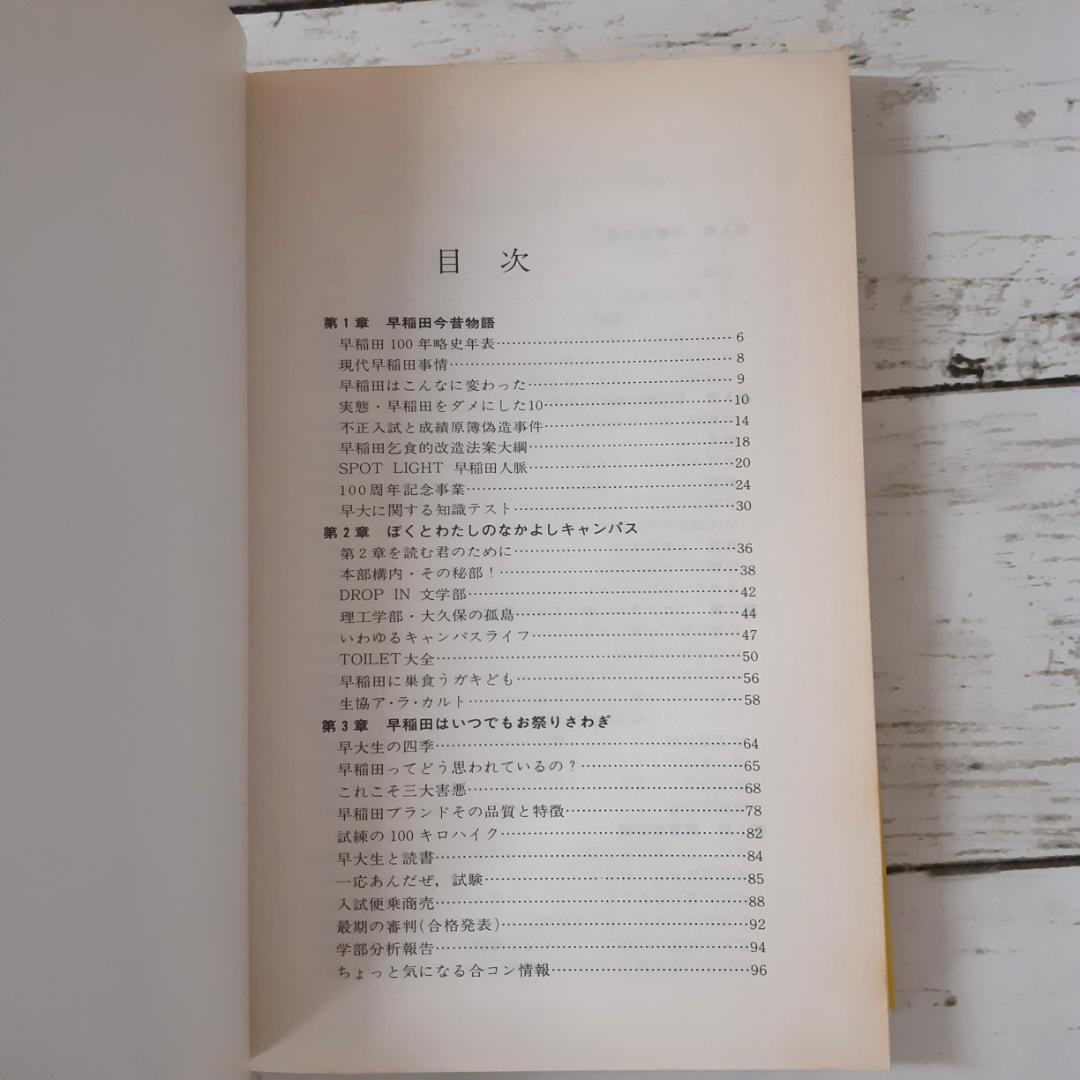 目 次
第1章 早稲田今昔物語
早稲田100年略史年表……………………………6
現代早稲田事情……………………………8
早稲田はこんなに変わった……………………………9
実態・早稲田をダメにした10……………………………10
不正入試と成績原簿偽造事件……………………………14
早稲田乞食的改造法案大綱……………………………18
SPOT LIGHT 早稲田人脈……………………………20
100周年記念事業……………………………24
早大に関する知識テスト……………………………30
第2章 ぼくとわたしのなかよしキャンパス
第2章を読む君のために……………………………36
本部構内・その秘部!……………………………38
DROP IN 文学部……………………………42
理工学部・大久保の孤島……………………………44
いわゆるキャンパスライフ……………………………47
TOILET大全……………………………50
早稲田に巣食うガキども……………………………56
生協ア・ラ・カルト……………………………58
第3章 早稲田はいつでもお祭りさわぎ
早大生の四季……………………………64
早稲田ってどう思われているの?……………………………65
これこそ三大害悪……………………………68
早稲田ブランドその品質と特徴……………………………78
試練の100キロハイク……………………………82
早大生と読書……………………………84
一応あんだぜ,試験……………………………85
入試便乗商売……………………………88
最期の審判(合格発表)……………………………92
学部分析報告……………………………94
ちょっと気になる合コン情報……………………………96